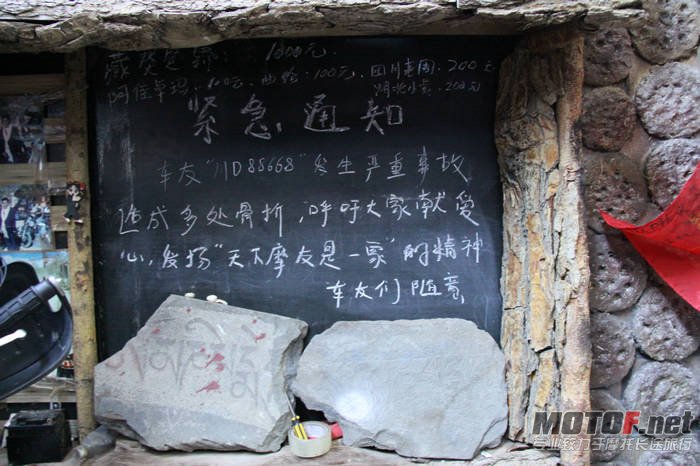 1000元
阿佳卓玛：100元 曲临：100元 四川老周：200元
200元
紧急通知
车友“川D88668”发生严重事故
造成多处骨折，呼吁大家献爱
心，发扬“天下摩友是一家”的精神
车友们随意
MOTOF.net
专业致力于摩托长途旅行